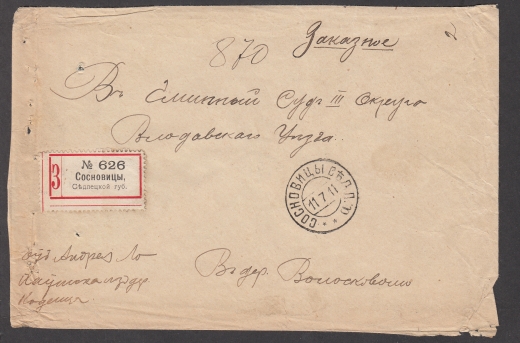 Заказное
870
Въ Гминный Судъ III Округа
Влодавскаго Уѣзда.
З
№ 626
Сосновицы,
Сѣдлецкой губ.
СОСНОВИЦЫ СѢДЛ. Г.
11.7.11
Андрея
Въ дер.